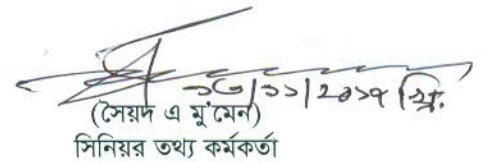 ১৩/১১/২০১৭ খ্রি.
(সৈয়দ এ মু'মেন)
সিনিয়র তথ্য কর্মকর্তা